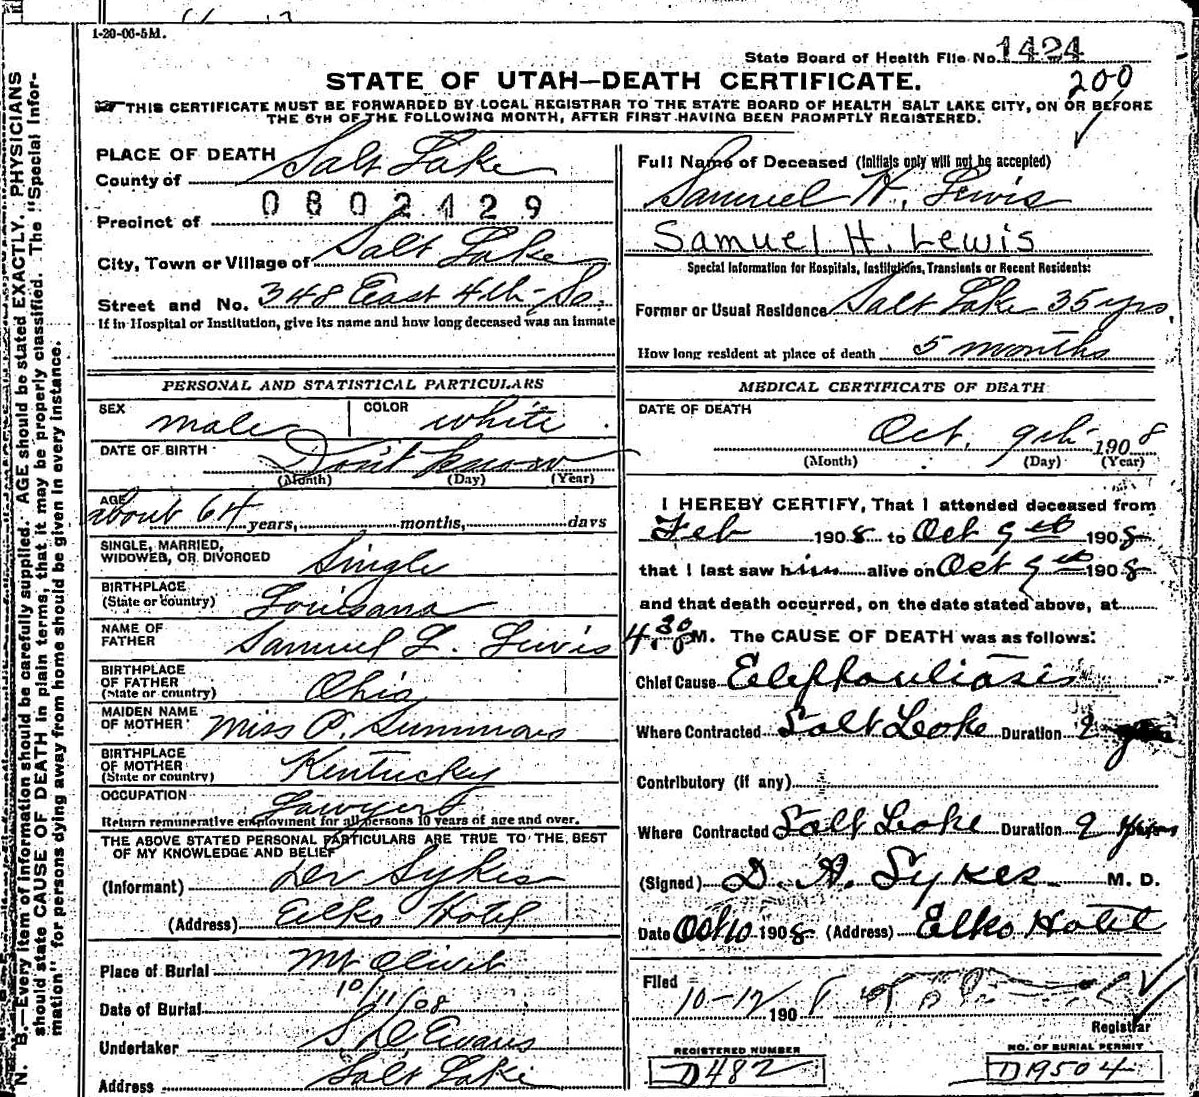 1-20-06-5M.
State Board of Health File No. 1424
200
STATE OF UTAH—DEATH CERTIFICATE.
THIS CERTIFICATE MUST BE FORWARDED BY LOCAL REGISTRAR TO THE STATE BOARD OF HEALTH SALT LAKE CITY, ON OR BEFORE
THE 5TH OF THE FOLLOWING MONTH, AFTER FIRST HAVING BEEN PROMPTLY REGISTERED.
PLACE OF DEATH
County of Salt Lake
0802429
Precinct of
City, Town or Village of Salt Lake
Street and No. 348 East 4th So.
If in Hospital or Institution, give its name and how long deceased was an inmate
Full Name of Deceased (Initials only will not be accepted)
Samuel H. Lewis
Samuel H. Lewis
Special Information for Hospitals, Institutions, Transients or Recent Residents:
Former or Usual Residence Salt Lake 35 yrs,
How long resident at place of death 5 months
PERSONAL AND STATISTICAL PARTICULARS
SEX male COLOR white
DATE OF BIRTH Don't know
(Month) (Day) (Year)
AGE about 64 years, months, days
SINGLE, MARRIED,
WIDOWED, OR DIVORCED Single
BIRTHPLACE
(State or country) Louisana
NAME OF
FATHER Samuel L. Lewis
BIRTHPLACE
OF FATHER
(State or country) Ohio
MAIDEN NAME
OF MOTHER Miss P. Summars
BIRTHPLACE
OF MOTHER
(State or country) Kentucky
OCCUPATION Lawyer
Return remunerative employment for all persons 10 years of age and over.
THE ABOVE STATED PERSONAL PARTICULARS ARE TRUE TO THE BEST
OF MY KNOWLEDGE AND BELIEF
(Informant) Dr Sykes
(Address) Elko Hotel
Place of Burial Mt Olivet
Date of Burial 10/11/08
Undertaker S D Evans
Address Salt Lake
MEDICAL CERTIFICATE OF DEATH
DATE OF DEATH
Oct. 9th 1908
(Month) (Day) (Year)
I HEREBY CERTIFY, That I attended deceased from
Feb 1908 to Oct 9th 1908
that I last saw him alive on Oct 9th 1908
and that death occurred, on the date stated above, at
4.30 P M. The CAUSE OF DEATH was as follows:
Chief Cause Elephantiasis
Where Contracted Salt Lake Duration 2
Contributory (if any)
Where Contracted Salt Lake Duration 2 years
(Signed) D. A. Sykes M. D.
Date Oct 10 1908 (Address) Elko Hotel
Filed 10-12 1908
Registrar
REGISTERED NUMBER
D482
NO. OF BURIAL PERMIT
D19504
N. B.—Every item of information should be carefully supplied. AGE should be stated EXACTLY. PHYSICIANS
should state CAUSE OF DEATH in plain terms, that it may be properly classified. The "Special Infor-
mation" for persons dying away from home should be given in every instance.